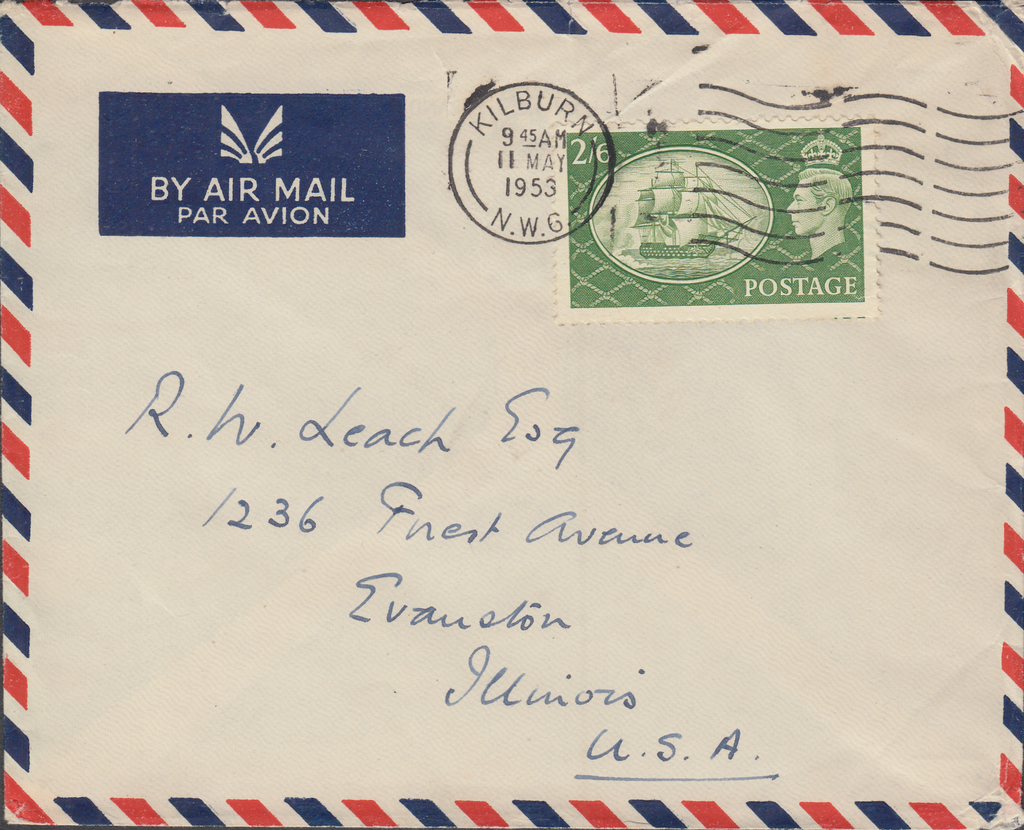 BY AIR MAIL
PAR AVION
KILBURN
9 45 AM
11 MAY
1953
N.W.6.
2/6
POSTAGE
R. W. Leach Esq
1236 Forest Avenue
Evanston
Illinois
U.S.A.